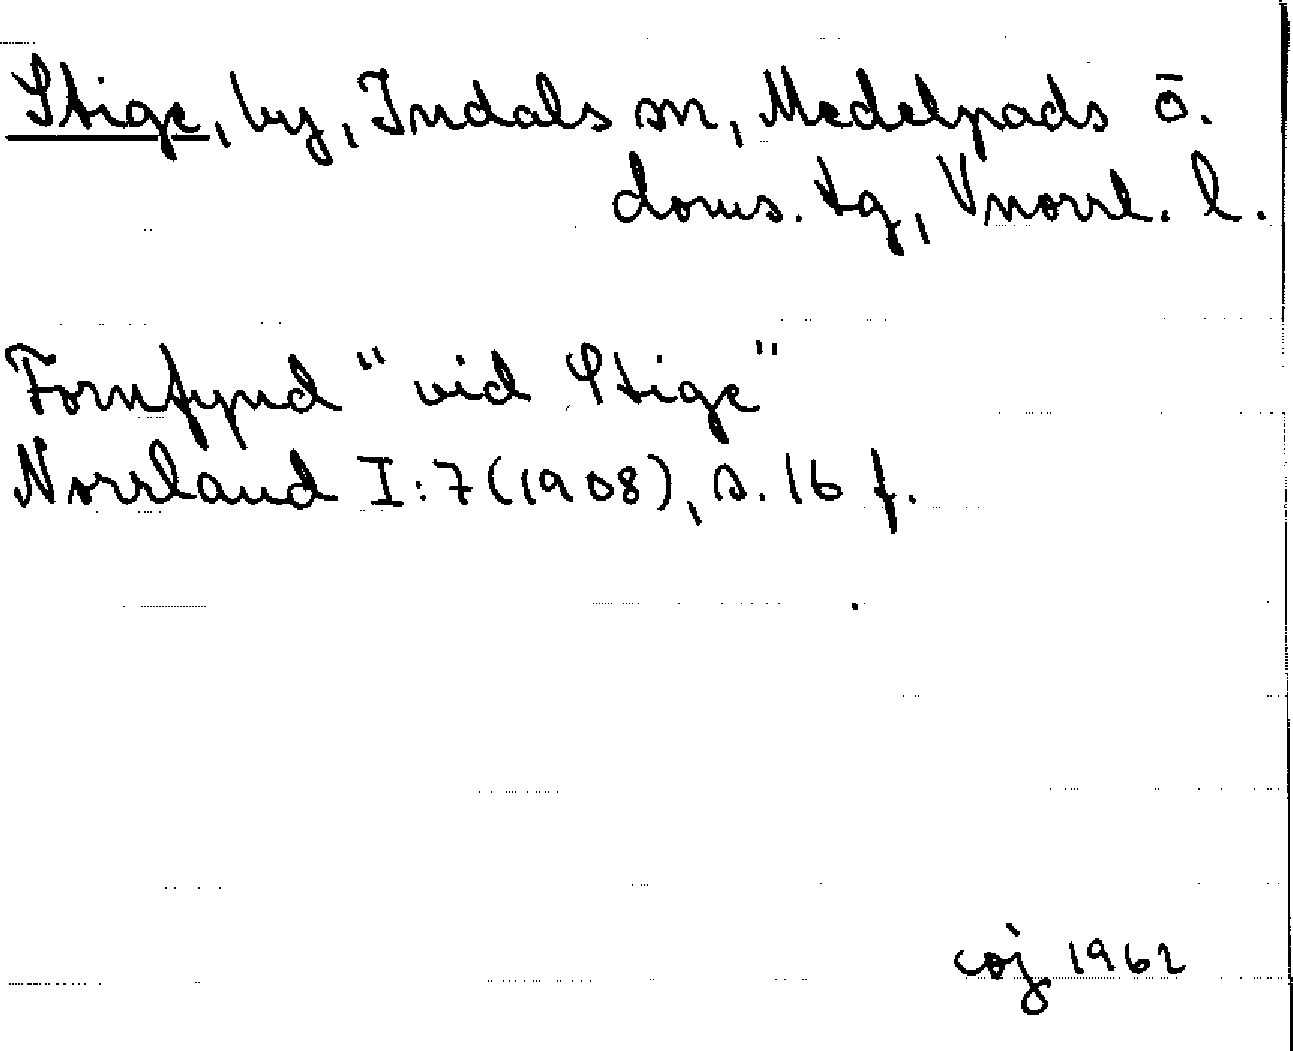 Stige, by, Indals sn, Medelpads ö.
doms. tg, Vnorrl. l.
Fornfynd "vid Stige"
Norrland I:7(1908), s. 16 f.
coj 1962